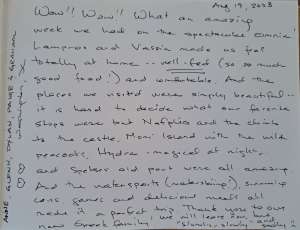 Aug 19, 2023
Wow!! Wow!! What an amazing
week we had on the spectacular
Lampros and Vassia made us feel
totally at home -- well-fed (so so much
good food!) and comfortable. And the
places we visited were simply beautiful --
it is hard to decide what our favorite
stops were but Nafplio and the climb
to the castle, Moni Island with the wild
peacocks, Hydra - magical at night,
and Spetses old port were all amazing.
And the watersports (waterbiking!), swimming
cons games and delicious meals all
made it a perfect trip. Thank you to our
new Greek family, we will leave you, but
"slowly, slowly" and